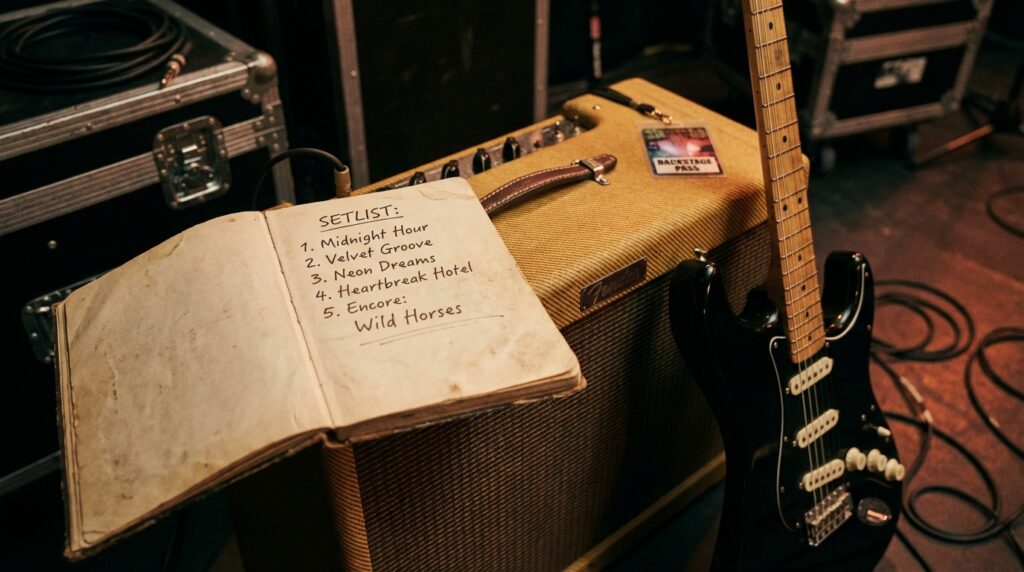 SETLIST:
1. Midnight Hour
2. Velvet Groove
3. Neon Dreams
4. Heartbreak Hotel
5. Encore:
Wild Horses
BACKSTAGE
PASS
Fender